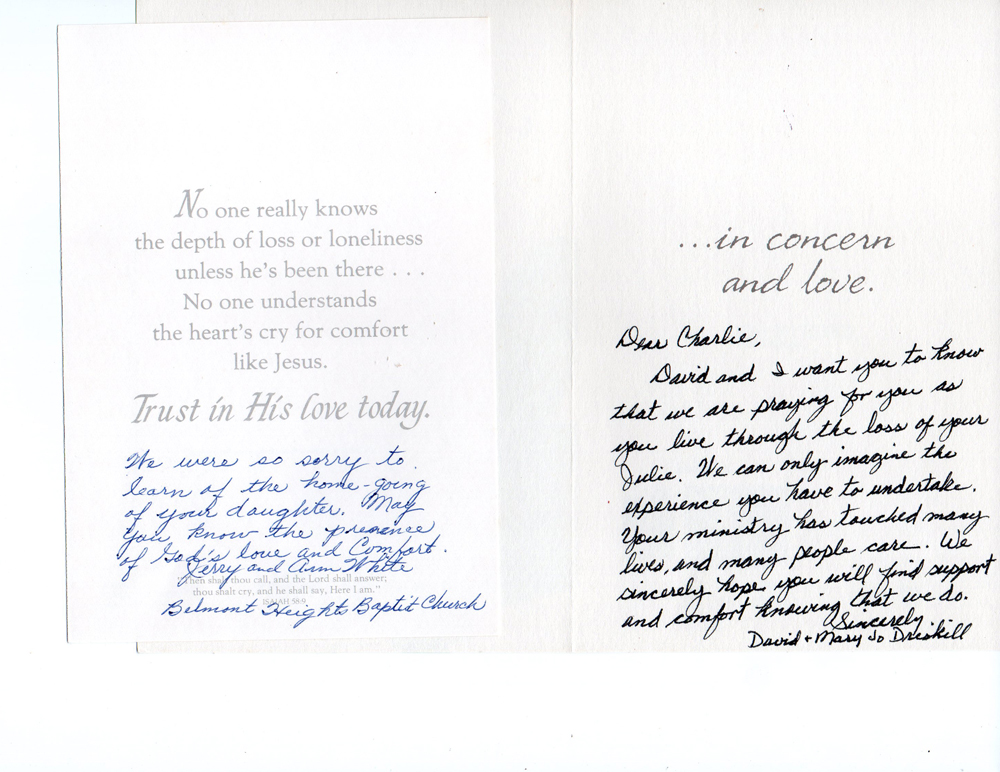 No one really knows
the depth of loss or loneliness
unless he's been there . . .
No one understands
the heart's cry for comfort
like Jesus.
Trust in His love today.
We were so sorry to
learn of the home-going
of your daughter. May
you know the presence
of God's love and Comfort.
Jerry and Ann White
"Then shalt thou call, and the Lord shall answer;
thou shalt cry, and he shall say, Here I am."
ISAIAH 58:9
Belmont Heights Baptist Church
...in concern
and love.
Dear Charlie,
David and I want you to know
that we are praying for you as
you live through the loss of your
Julie. We can only imagine the
experience you have to undertake.
Your ministry has touched many
lives, and many people care. We
sincerely hope you will find support
and comfort knowing that we do.
Sincerely
David + Mary Jo Driskill